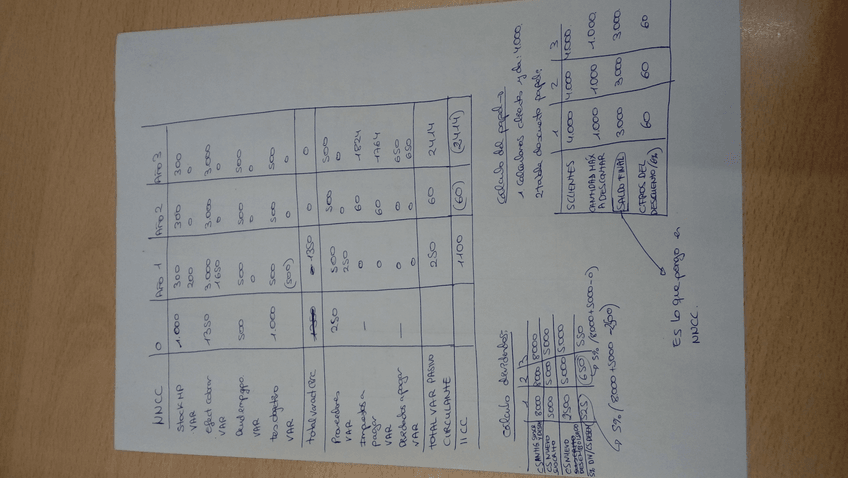 NNCC 0 Año 1 Año 2 Año 3
Stock MP 1.000 300 300 300
VAR 200 0 0
Efect a cobrar 1350 3.000 3.000 3.000
VAR 1650 0 0
Deud emp gpo 500 500 500 500
VAR 0 0 0
Tes objetivo 1.000 500 500 500
VAR (500) 0 0
Total var act 1350 0 0
Proveedores 250 500 500 500
VAR 250 0 0
Impuestos a pagar — 0 60 1824
VAR 0 60 1764
Dividendos a pagar — 0 0 650
VAR 0 0 650
TOTAL VAR PASIVO CIRCULANTE 250 60 2414
II CC 1100 (60) (2414)
Cálculo dividendos:
1 2 3
8000 8000 8000
CS NUEVO SUSCRITO 5000 5000 5000
CS NUEVO DESEMBOLSADO 2500 5000 5000
525 650 550
5% (8000+5000-0)
5% (8000+5000-2500)
Cálculo del papel →
1 Calculamos clientes y da: 4.000
2 tabla descuento papel:
1 2 3
S.CLIENTES 4.000 4.000 4.000
CANTIDAD MÁX A DESCONTAR 1.000 1.000 1.000
SALDO FINAL 3.000 3.000 3.000
DESCUENTO (6%) 60 60 60
Es lo que pongo en
NNCC.